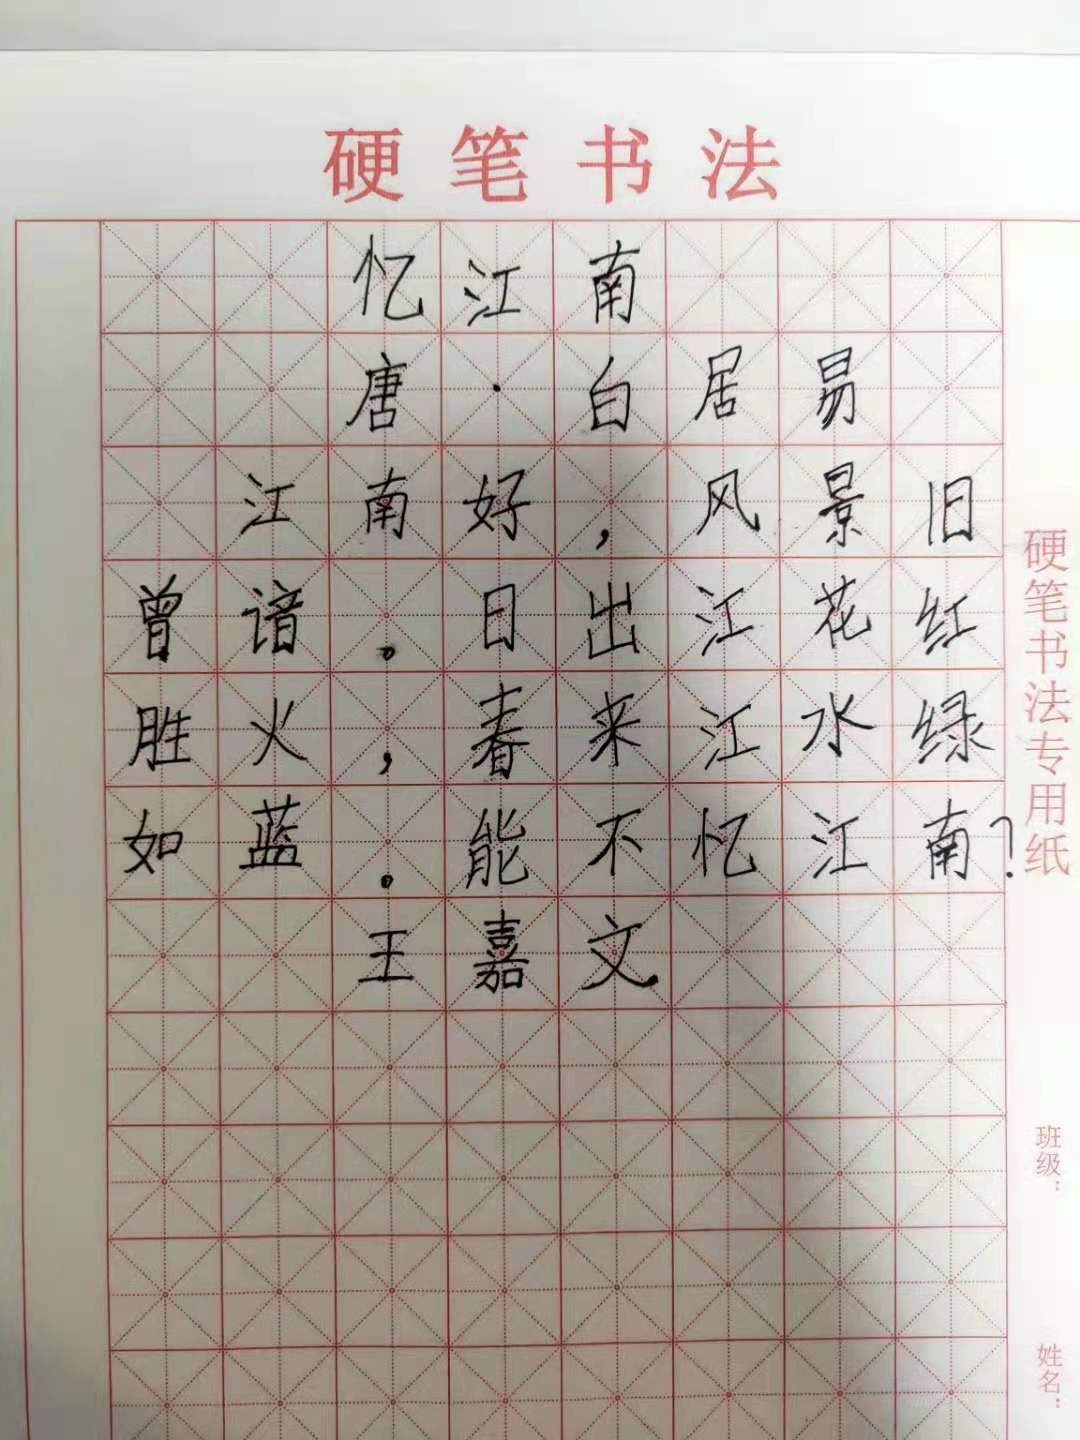 硬笔书法
忆江南
唐·白居易
江南好，风景旧
曾谙。日出江花红
胜火，春来江水绿
如蓝。能不忆江南？
王嘉文
硬笔书法专用纸
班级：
姓名：